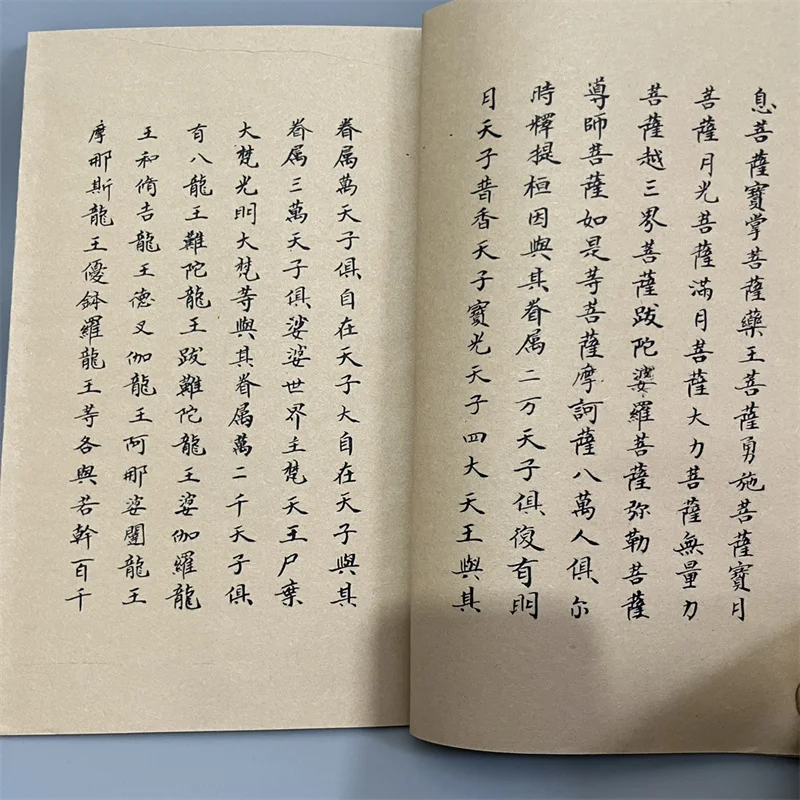 息菩薩寶掌菩薩藥王菩薩勇施菩薩寶月
菩薩月光菩薩滿月菩薩大力菩薩無量力
菩薩越三界菩薩跋陀婆羅菩薩弥勒菩薩
導師菩薩如是等菩薩摩訶薩八萬人俱尔
時釋提桓因與其眷属二万天子俱復有明
月天子普香天子寶光天子四大天王與其
眷属萬天子俱自在天子大自在天子與其
眷属三萬天子俱娑婆世界主梵天王尸棄
大梵光明大梵等與其眷属萬二千天子俱
有八龍王難陀龍王跋難陀龍王娑伽羅龍
王和脩吉龍王德叉伽龍王阿那婆闥龍王
摩那斯龍王優鉢羅龍王等各與若幹百千